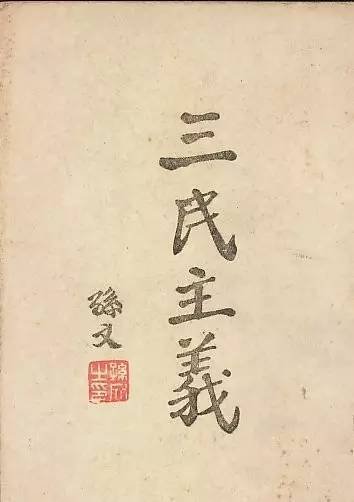 三民主義
孫文
孫文之印